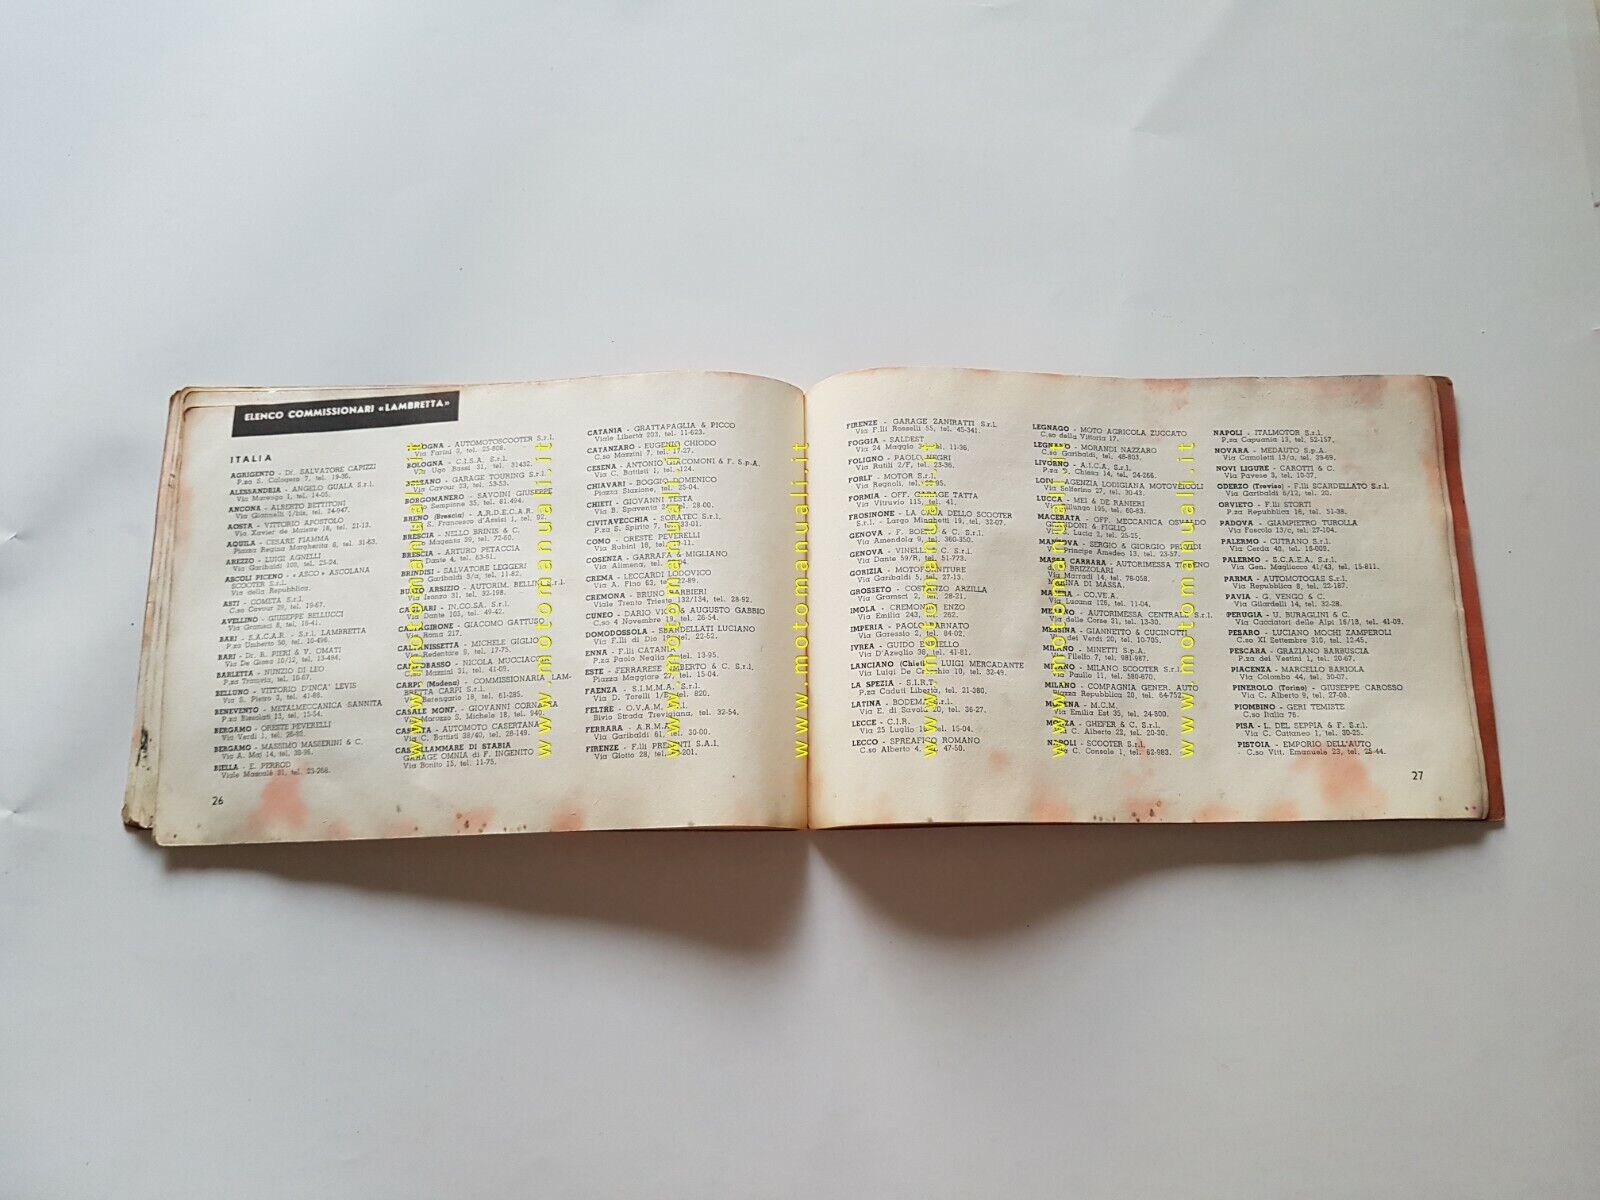 ELENCO COMMISSIONARI «LAMBRETTA»
ITALIA
AGRIGENTO - Di. SALVATORE CAPIZZI
P.za S. Calogero 7, tel. 19-36.
ALESSANDRIA - ANGELO GUALA S.r.l.
Via Marengo 1, tel. 14-05.
ANCONA - ALBERTO BETTITONI
Via Giannelli 1/bis, tel. 24-947.
AOSTA - VITTORIO APOSTOLO
Via Xavier de Maistre 18, tel. 21-13.
AQUILA - CESARE FIAMMA
Piazza Regina Margherita 6, tel. 31-63.
AREZZO - LUIGI AGNELLI
Via Garibaldi 109, tel. 25-24.
ASCOLI PICENO - «ASCO» ASCOLANA
SCOOTER S.r.l.
Via della Repubblica.
ASTI - COMETA S.r.l.
C.so Cavour 29, tel. 19-67.
AVELLINO - GIUSEPPE BELLUCCI
Via Gramsci 8, tel. 16-41.
BARI - S.A.C.A.R. - S.r.l. LAMBRETTA
P.za Umberto 50, tel. 10-496.
BARI - Dr. R. PIERI & V. OMATI
Via De Giosa 10/12, tel. 13-494.
BARLETTA - NUNZIO DI LEO
P.za Tranvia, tel. 16-67.
BELLUNO - VITTORIO D'INCA' LEVIS
Via S. Pietro 3, tel. 41-88.
BENEVENTO - METALMECCANICA SANNITA
P.za Bissolati 15, tel. 15-54.
BERGAMO - ORESTE PEVERELLI
Via Verdi 1, tel. 28-92.
BERGAMO - MASSIMO MASSERINI & C.
Via A. Mai 14, tel. 30-96.
BIELLA - E. PERROD
Viale Mascalè 21, tel. 23-268.
26
BOLOGNA - AUTOMOTOSCOOTER S.r.l.
Via Farini 3, tel. 25-808.
BOLOGNA - C.I.S.A. S.r.l.
Via Ugo Bassi 31, tel. 31432.
BOLZANO - GARAGE TOURING S.r.l.
Via Cavour 23, tel. 53-53.
BORGOMANERO - SAVOINI GIUSEPPE
Sempione 35, tel. 81.494.
BRENO (Brescia) - A.R.D.E.C.A.R.
S. Francesco d'Assisi 1, tel. 92.
BRESCIA - NELLO BRINIS & C.
Magenta 59, tel. 72-60.
BRESCIA - ARTURO PETACCIA
Dante 4, tel. 63-91.
BRINDISI - SALVATORE LEGGERI
Garibaldi 3/a, tel. 11-82.
BUSTO ARSIZIO - AUTORIM. BELLINI S.r.l.
Isonzo 31, tel. 32-198.
CAGLIARI - IN.CO.SA. S.r.l.
Via Dante 103, tel. 49-42.
CALTAGIRONE - GIACOMO GATTUSO
Via Roma 217.
CALTANISSETTA - MICHELE GIGLIO
Via Redentore 9, tel. 17-75.
CAMPOBASSO - NICOLA MUCCIACCIO
C.so Mazzini 31, tel. 41-09.
CARPI (Modena) - COMMISSIONARIA LAM-
BRETTA CARPI S.r.l.
Via Berengario 18, tel. 61-285.
CASALE MONF. - GIOVANNI CORNAGLIA
Via Morozzo S. Michele 18, tel. 940.
CASERTA - AUTOMOTO CASERTANA
Via C. Battisti 38/40, tel. 26-149.
CASTELLAMMARE DI STABIA
GARAGE OMNIA di F. INGENITO
Via Bonito 15, tel. 11-75.
CATANIA - GRATTAPAGLIA & PICCO
Viale Libertà 203, tel. 11-623.
CATANZARO - EUGENIO CHIODO
C.so Mazzini 7, tel. 17-27.
CESENA - ANTONIO GIACOMONI & F. S.p.A.
Via C. Battisti 1, tel. 124.
CHIAVARI - BOGGIO DOMENICO
Piazza Stazione, tel. 25-04.
CHIETI - GIOVANNI TESTA
Via B. Spaventa 24, tel. 28-00.
CIVITAVECCHIA - SORATEC S.r.l.
P.za S. Spirito 7, tel. 33-01.
COMO - ORESTE PEVERELLI
Via Rubini 18, tel. 11.
COSENZA - GARRAFA & MIGLIANO
Via Alimena, tel.
CREMA - LECCARDI LODOVICO
Via A. Fino 63, tel. 22-89.
CREMONA - BRUNO BARBIERI
Viale Trento Trieste 132/134, tel. 28-92.
CUNEO - DARIO VICO & AUGUSTO GABBIO
C.so 4 Novembre 19, tel. 26-54.
DOMODOSSOLA - SBARDELLATI LUCIANO
Via F.lli di Dio 10, tel. 22-52.
ENNA - F.lli CATANIA
P.za Paolo Neglia, tel. 13-95.
ESTE - FERRARESE UMBERTO & C. S.r.l.
Piazza Maggiore 27, tel. 15-04.
FAENZA - S.I.M.M.A. S.r.l.
Via D. Torelli 1/E, tel. 820.
FELTRE - O.V.A.M. S.r.l.
Bivio Strada Trevigiana, tel. 32-54.
FERRARA - A.R.M.A.
Via Garibaldi 61, tel. 30-00.
FIRENZE - F.lli PREDENTI S.A.I.
Via Giotto 28, tel. 201.
FIRENZE - GARAGE ZANIRATTI S.r.l.
Via F.lli Rosselli 55, tel. 45-341.
FOGGIA - SALDEST
Via 24 Maggio, tel. 11-36.
FOLIGNO - PAOLO NEGRI
Via Rutili 2/F, tel. 23-36.
FORLI' - MOTOR S.r.l.
Via Regnoli, tel. 95.
FORMIA - OFF. GARAGE TATTA
Via Vitruvio 115, tel. 41.
FROSINONE - LA CASA DELLO SCOOTER
S.r.l. - Largo Minghetti 19, tel. 32-07.
GENOVA - F. BOERO & C. S.r.l.
Via Amendola 9, tel. 360-350.
GENOVA - VINELLI & C. S.r.l.
Via Dante 59/R, tel. 51-773.
GORIZIA - MOTOFORNITURE
Via Garibaldi 5, tel. 27-13.
GROSSETO - COSTANZO ARZILLA
Via Gramsci 2, tel. 28-21.
IMOLA - CREMONINI ENZO
Via Emilia 243, tel. 262.
IMPERIA - PAOLO ARNATO
Via Garessio 2, tel. 84-02.
IVREA - GUIDO ENRIELLO
Via D'Azeglio 38, tel. 41-81.
LANCIANO (Chieti) - LUIGI MERCADANTE
Via Luigi De Crecchio 10, tel. 32-49.
LA SPEZIA - S.I.R.T.
P.za Caduti Libertà, tel. 21-380.
LATINA - BODEMA S.r.l.
Via E. di Savoia 20, tel. 36-27.
LECCE - C.I.R.
Via 25 Luglio 16, tel. 15-04.
LECCO - SPREAFICO ROMANO
C.so Alberto 4, tel. 47-50.
LEGNAGO - MOTO AGRICOLA ZUCCATO
C.so della Vittoria 17.
LEGNANO - MORANDI NAZZARO
C.so Garibaldi, tel. 48-803.
LIVORNO - A.I.C.A. S.r.l.
P.za D. Chiesa 14, tel. 24-266.
LODI - AGENZIA LODIGIANA MOTOVEICOLI
Via Solferino 27, tel. 30-43.
LUCCA - MEI & DE RANIERI
Via Fillungo 195, tel. 60-83.
MACERATA - OFF. MECCANICA OSVALDO
& FIGLIO
Lucia 2, tel. 25-25.
MANTOVA - SERGIO & GIORGIO PREVIDI
Via Principe Amedeo 13, tel. 23-57.
MASSA CARRARA - AUTORIMESSA TIRRENO
di BRIZZOLARI
Via Marradi 14, tel. 78-058.
MARINA DI MASSA.
MATERA - CO.VE.A.
Via Lucana 126, tel. 11-04.
MERANO - AUTORIMESSA CENTRALE S.r.l.
Via delle Corse 31, tel. 13-30.
MESSINA - GIANNETTO & CUCINOTTI
Via dei Verdi 20, tel. 10-705.
MILANO - MINETTI S.p.A.
Via Filelfo 7, tel. 981-987.
MILANO - MILANO SCOOTER S.r.l.
Via Paullo 11, tel. 580-670.
MILANO - COMPAGNIA GENER. AUTO
Piazza Repubblica 20, tel. 64-752.
MODENA - M.C.M.
Via Emilia Est 35, tel. 24-800.
MONZA - GHEFER & C. S.r.l.
Via C. Alberto 22, tel. 20-30.
NAPOLI - SCOOTER S.r.l.
Via C. Console 1, tel. 62-983.
NAPOLI - ITALMOTOR S.r.l.
P.za Capuania 13, tel. 52-157.
NOVARA - MEDAUTO S.p.A.
Via Camoletti 13/a, tel. 39-69.
NOVI LIGURE - CAROTTI & C.
Via Pavese 3, tel. 10-37.
ODERZO (Treviso) - F.lli SCARDELLATO S.r.l.
Via Garibaldi 6/12, tel. 20.
ORVIETO - F.lli STORTI
P.za Repubblica 16, tel. 51-38.
PADOVA - GIAMPIETRO TUROLLA
Via Foscolo 13/c, tel. 27-104.
PALERMO - CUTRANO S.r.l.
Via Cerda 48, tel. 18-009.
PALERMO - S.C.A.E.A. S.r.l.
Via Gen. Magliocco 41/43, tel. 15-811.
PARMA - AUTOMOTOGAS S.r.l.
Via Repubblica 8, tel. 22-187.
PAVIA - G. VENGO & C.
Via Gilardelli 14, tel. 32-28.
PERUGIA - U. BURAGLINI & C.
Via Cacciatori delle Alpi 16/18, tel. 41-09.
PESARO - LUCIANO MOCHI ZAMPEROLI
C.so XI Settembre 310, tel. 12-45.
PESCARA - GRAZIANO BARBUSCIA
P.za dei Vestini 1, tel. 20-67.
PIACENZA - MARCELLO BARIOLA
Via Colombo 44, tel. 30-07.
PINEROLO (Torino) - GIUSEPPE CAROSSO
Via C. Alberto 9, tel. 27-08.
PIOMBINO - GERI TEMISTE
C.so Italia 76.
PISA - L. DEL SEPPIA & F. S.r.l.
Via C. Cattaneo 1, tel. 30-25.
PISTOIA - EMPORIO DELL'AUTO
C.so Vitt. Emanuele 23, tel. 28-44.
27
www.motomanuali.it
www.motomanuali.it
www.motomanuali.it
www.motomanuali.it
www.motomanuali.it
www.motomanuali.it
www.motomanuali.it